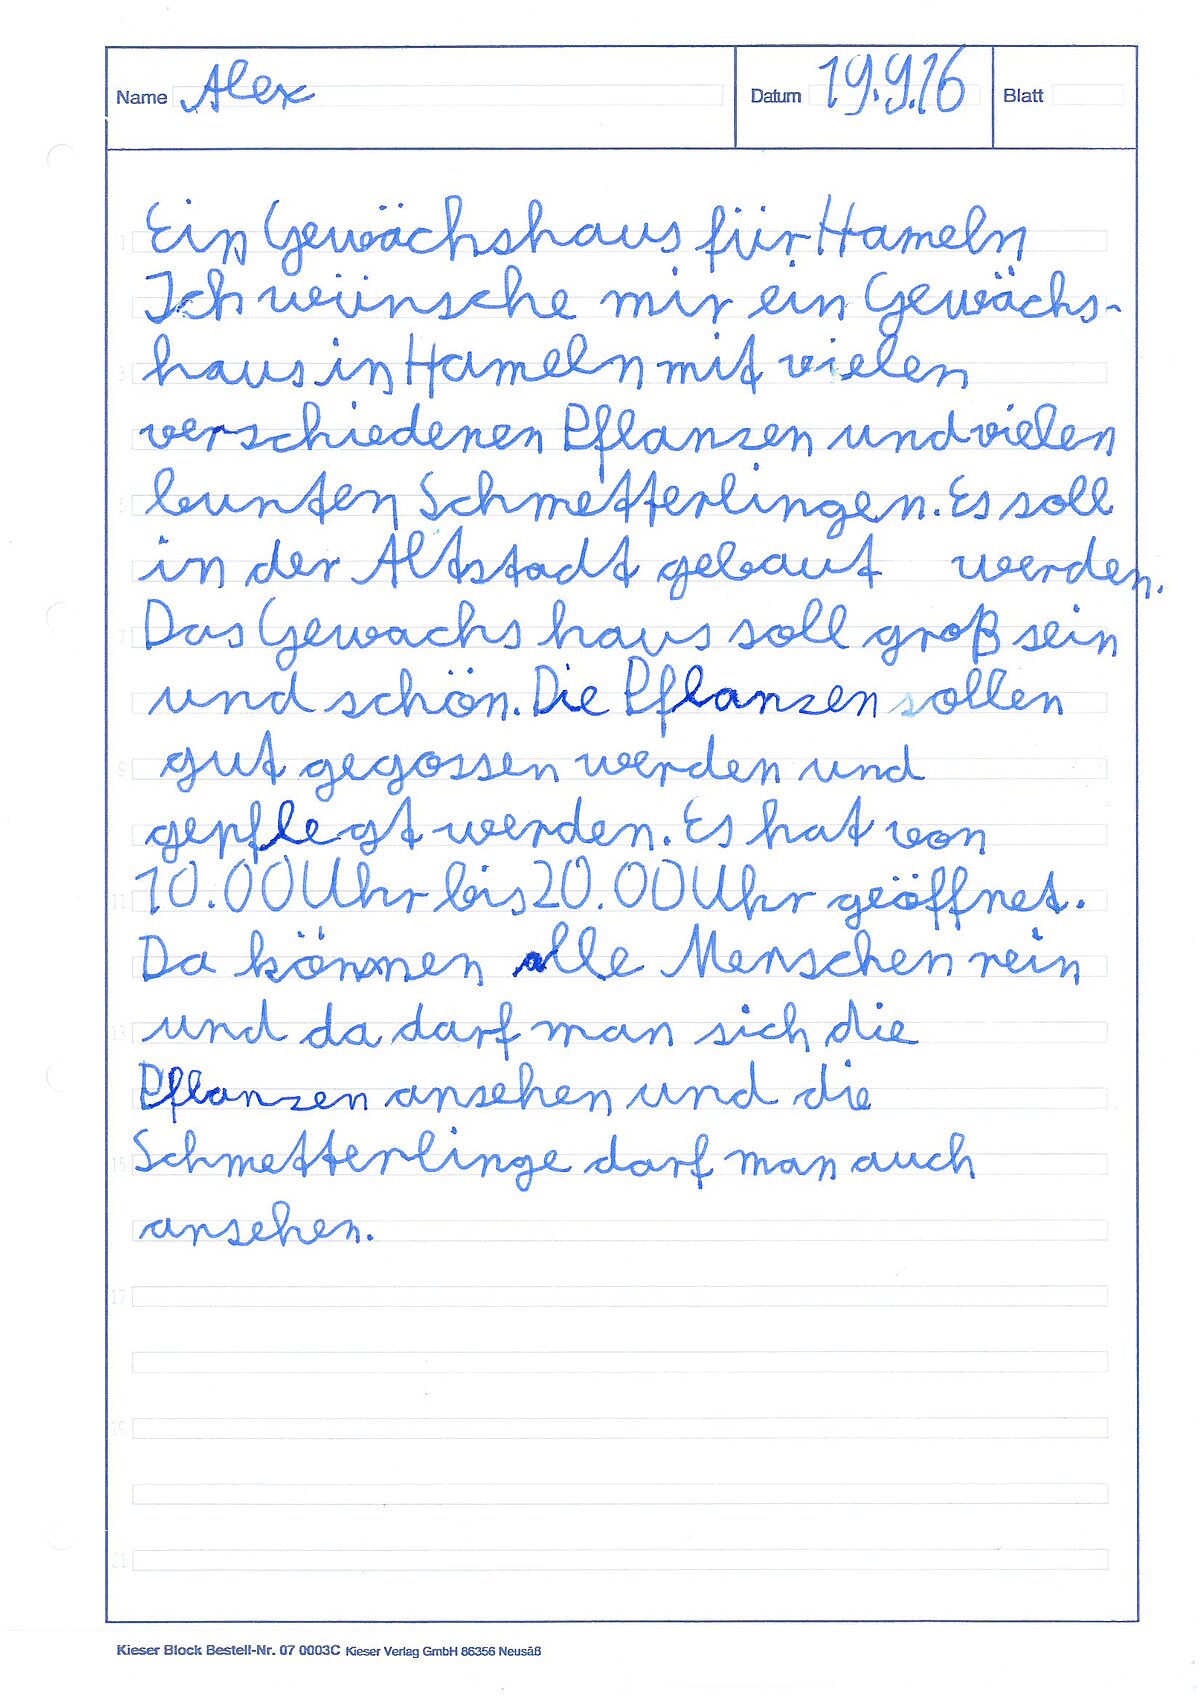 Name Alex Datum 19.9.16 Blatt
Ein Gewächshaus für Hameln
Ich wünsche mir ein Gewächs-
haus in Hameln mit vielen
verschiedenen Pflanzen und vielen
bunten Schmetterlingen. Es soll
in der Altstadt gebaut werden.
Das Gewachs haus soll groß sein
und schön. Die Pflanzen sollen
gut gegossen werden und
gepflegt werden. Es hat von
10.00 Uhr bis 20.00 Uhr geöffnet.
Da können alle Menschen rein
und da darf man sich die
Pflanzen ansehen und die
Schmetterlinge darf man auch
ansehen.
1
3
5
7
9
11
13
15
17
19
21
Kieser Block Bestell-Nr. 07 0003C Kieser Verlag GmbH 86356 Neusäß